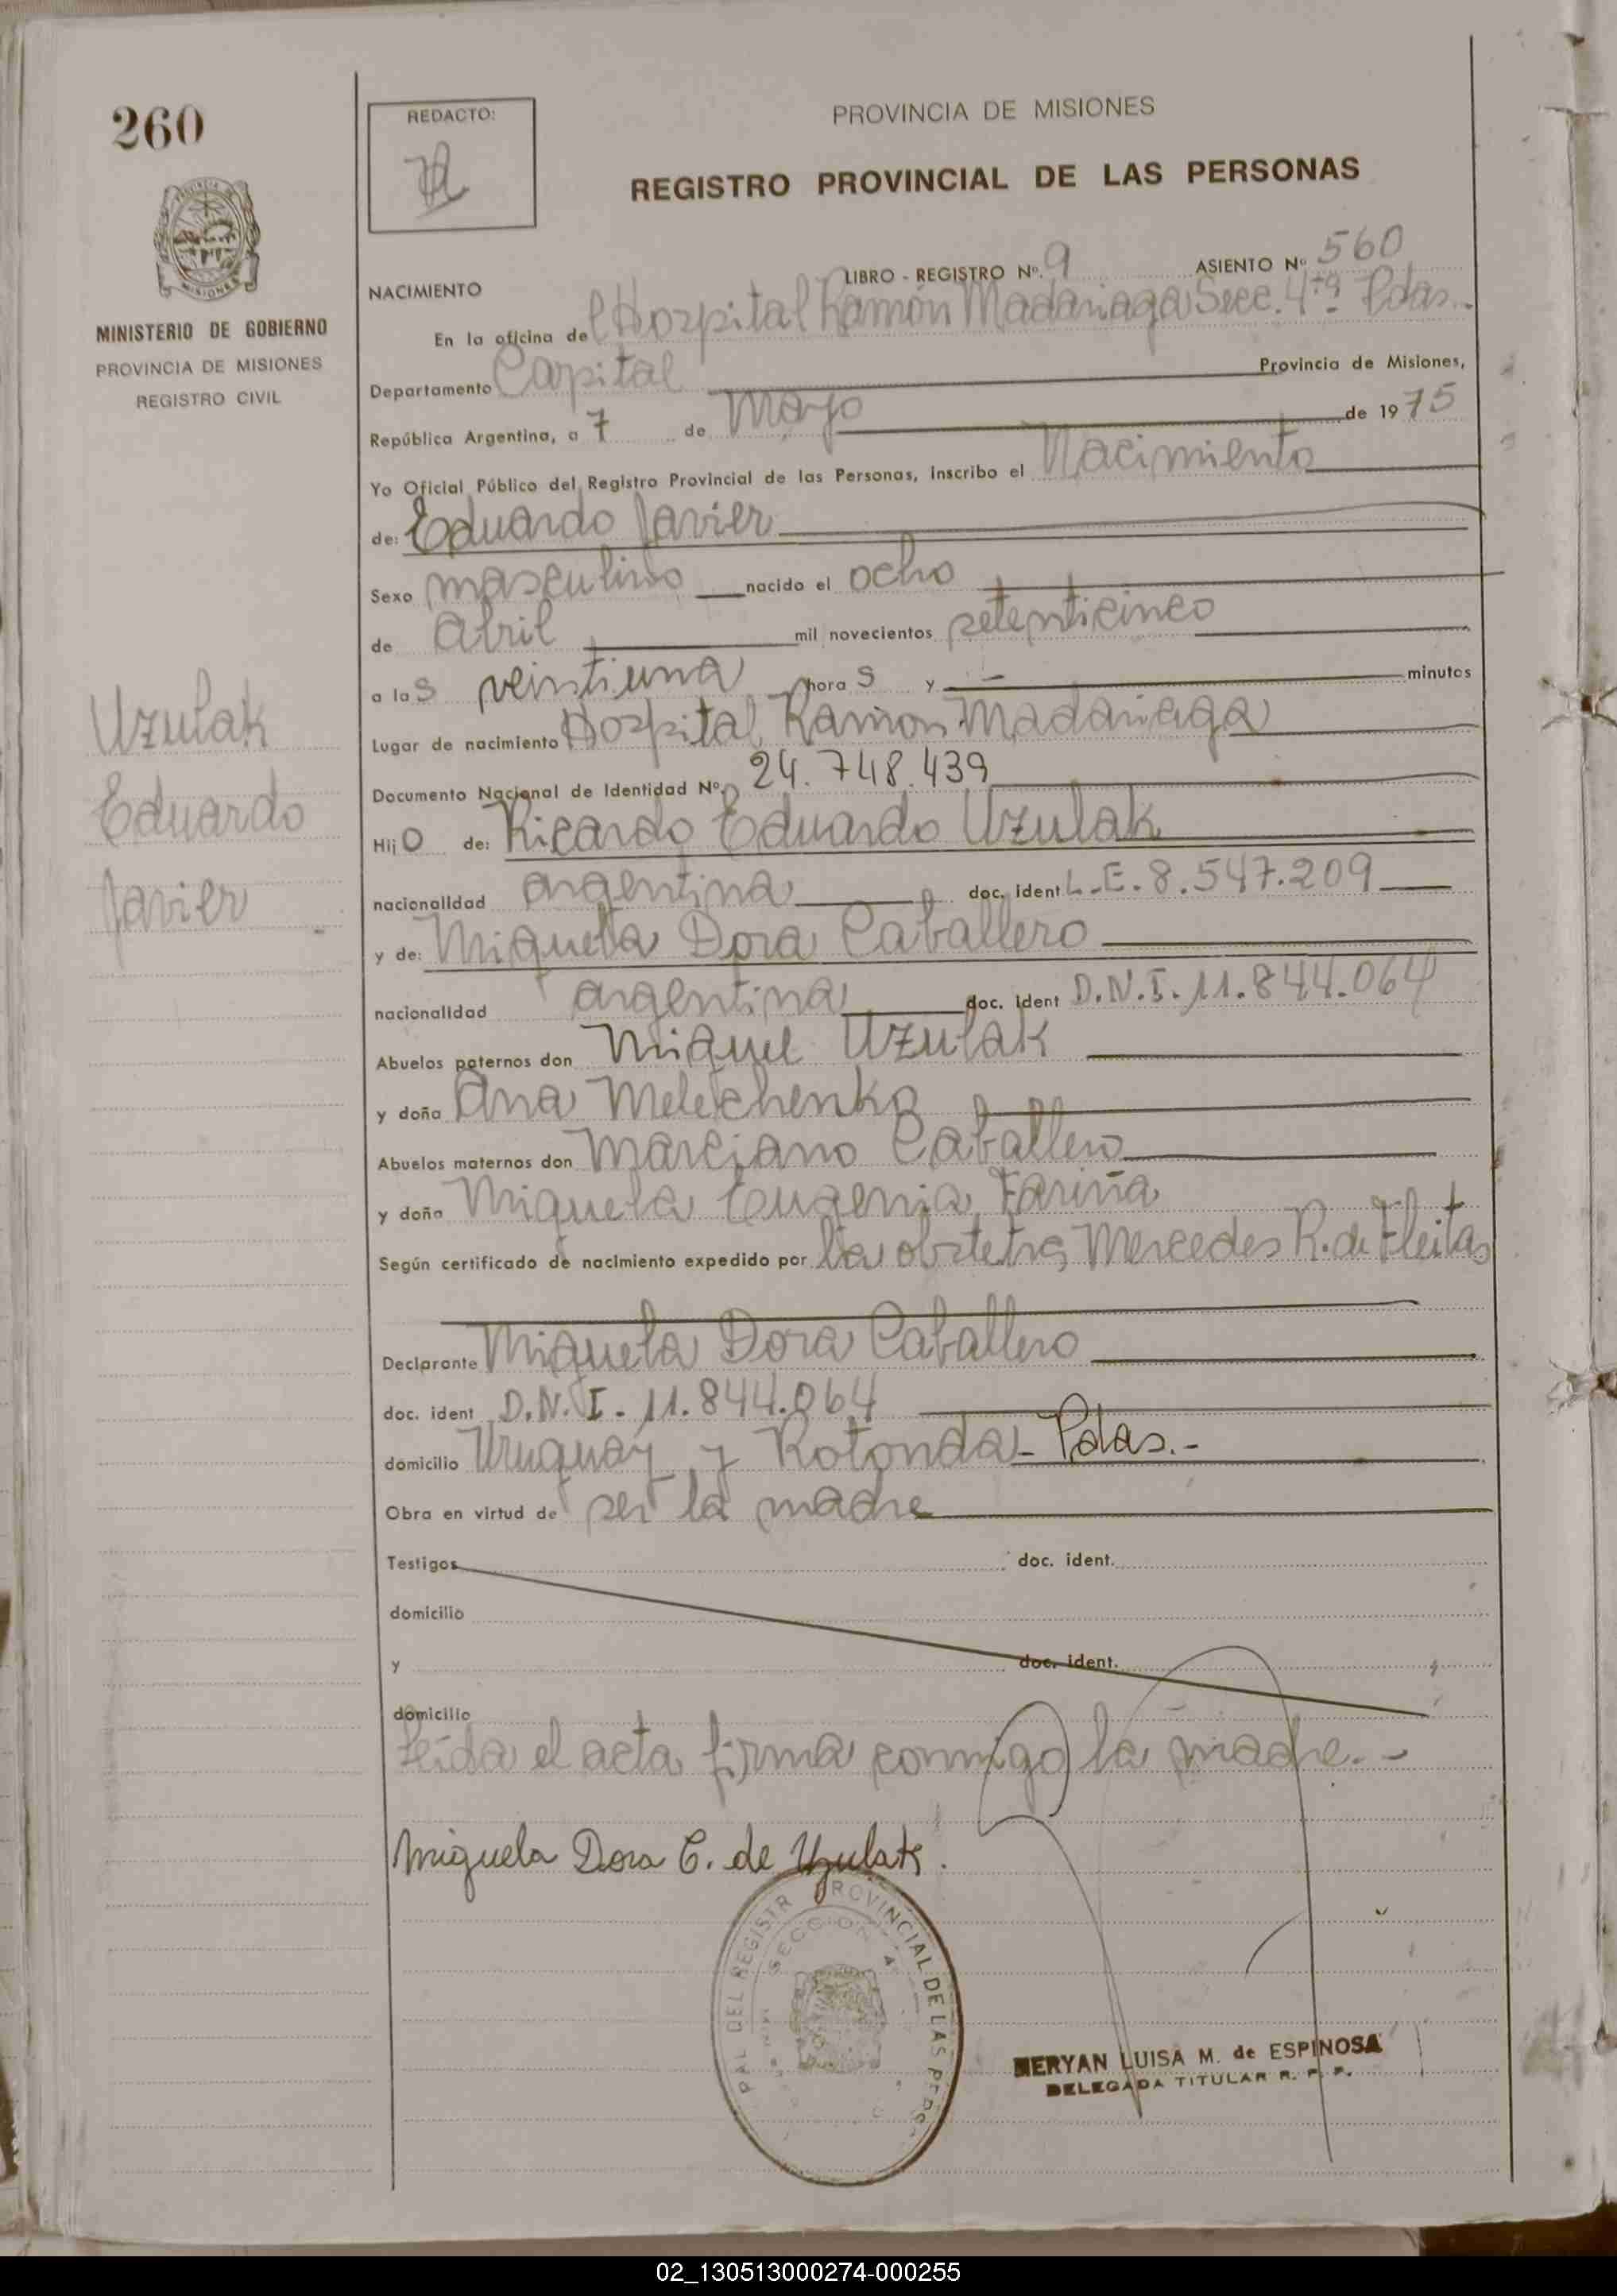 260
REDACTO:
PROVINCIA DE MISIONES
REGISTRO PROVINCIAL DE LAS PERSONAS
MINISTERIO DE GOBIERNO
PROVINCIA DE MISIONES
REGISTRO CIVIL
Uzulak
Eduardo
Javier
LIBRO - REGISTRO Nº. 9 ASIENTO Nº 560
NACIMIENTO
En la oficina del Hospital Ramón Madariaga Secc. 4ta Pdas.
Departamento Capital Provincia de Misiones,
República Argentina, a 7 de Mayo de 1975
Yo Oficial Público del Registro Provincial de las Personas, inscribo el Nacimiento
de: Eduardo Javier
Sexo masculino nacido el ocho
de Abril mil novecientos setenticinco
a las veintiuna horas y — minutos
Lugar de nacimiento Hospital Ramón Madariaga
Documento Nacional de Identidad Nº. 24.748.439
Hijo de: Ricardo Eduardo Uzulak
nacionalidad argentina doc. ident L.E. 8.547.209
y de: Miguela Dora Caballero
nacionalidad argentina doc. ident D.N.I. 11.844.064
Abuelos paternos don Miguel Uzulak
y doña Ana Meletchenko
Abuelos maternos don Marciano Caballero
y doña Miguela Eugenia Fariña
Según certificado de nacimiento expedido por la obstetra Mercedes R. de Fleitas
Declarante Miguela Dora Caballero
doc. ident D.N.I. 11.844.064
domicilio Uruguay y Rotonda - Pdas.-
Obra en virtud de ser la madre
Testigos doc. ident.
domicilio
y doc. ident.
domicilio
Leída el acta firma conmigo la madre.-
Miguela Dora C. de Uzulak.
PAL DEL REGISTR PROVINCIAL DE LAS PERSO
SECCION 4
MERYAN LUISA M. de ESPINOSA
DELEGADA TITULAR R. P. P.
02_130513000274-000255